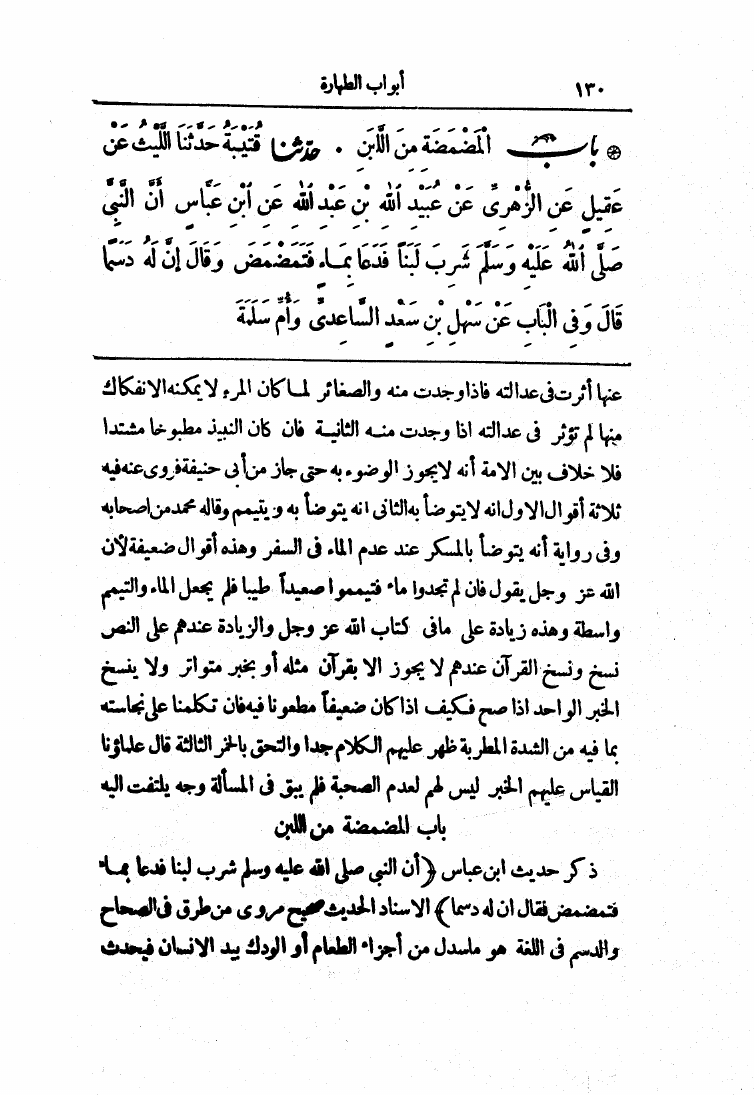 ١٣٠ أبواب الطهارة
باب الْمَضْمَضَةِ مِنَ اللَّبَنِ . حدّثنا قُتَيْبَةُ حَدَّثَنَا اللَّيْثُ عَنْ
عَقِيلٍ عَنِ الزُّهْرِىِّ عَنْ عُبَيْدِ اللهِ بْنِ عَبْدِ اللهِ عَنِ ابْنِ عَبَّاسٍ أَنَّ النَّبِىَّ
صَلَّى اللهُ عَلَيْهِ وَسَلَّمَ شَرِبَ لَبَنًا فَدَعَا بِمَاءٍ فَتَمَضْمَضَ وَقَالَ إِنَّ لَهُ دَسَمًا
قَالَ وَفِى الْبَابِ عَنْ سَهْلِ بْنِ سَعْدٍ السَّاعِدِىِّ وَأُمِّ سَلَمَةَ
عنها أثرت فى عدالته فاذا وجدت منه والصغائر لما كان المرء لا يمكنه الانفكاك
منها لم تؤثر فى عدالته اذا وجدت منه الثانية فان كان النبيذ مطبوخا مشتدا
فلا خلاف بين الامة أنه لايجوز الوضوء به حتى جاز من أبى حنيفة فروى عنه فيه
ثلاثة أقوال الاول انه لا يتوضأ به الثانى انه يتوضأ به ويتيمم وقاله محمد من اصحابه
وفى رواية أنه يتوضأ بالمسكر عند عدم الماء فى السفر وهذه أقوال ضعيفة لأن
الله عز وجل يقول فان لم تجدوا ماء فتيمموا صعيداً طيبا فلم يجعل الماء والتيمم
واسطة وهذه زيادة على مافى كتاب الله عز وجل والزيادة عندهم على النص
نسخ ونسخ القرآن عندهم لا يجوز الا بقرآن مثله أو بخبر متواتر ولا ينسخ
الخبر الواحد اذا صح فكيف اذا كان ضعيفاً مطعونا فيه فان تكلمنا على نجاسته
بما فيه من الشدة المطربة ظهر عليهم الكلام جدا والتحق بالخمر الثالثة قال علماؤنا
القياس عليهم الخبر ليس لهم لعدم الصحبة فلم يبق فى المسألة وجه يلتفت اليه
باب المضمضة من اللبن
ذكر حديث ابن عباس ﴿أن النبى صلى الله عليه وسلم شرب لبنا فدعا بماء
فتمضمض فقال ان له دسما﴾ الاسناد الحديث صحيح مروى من طرق فى الصحاح
والدسم فى اللغة هو ماسدل من أجزاء الطعام أو الودك بيد الانسان فيحدث